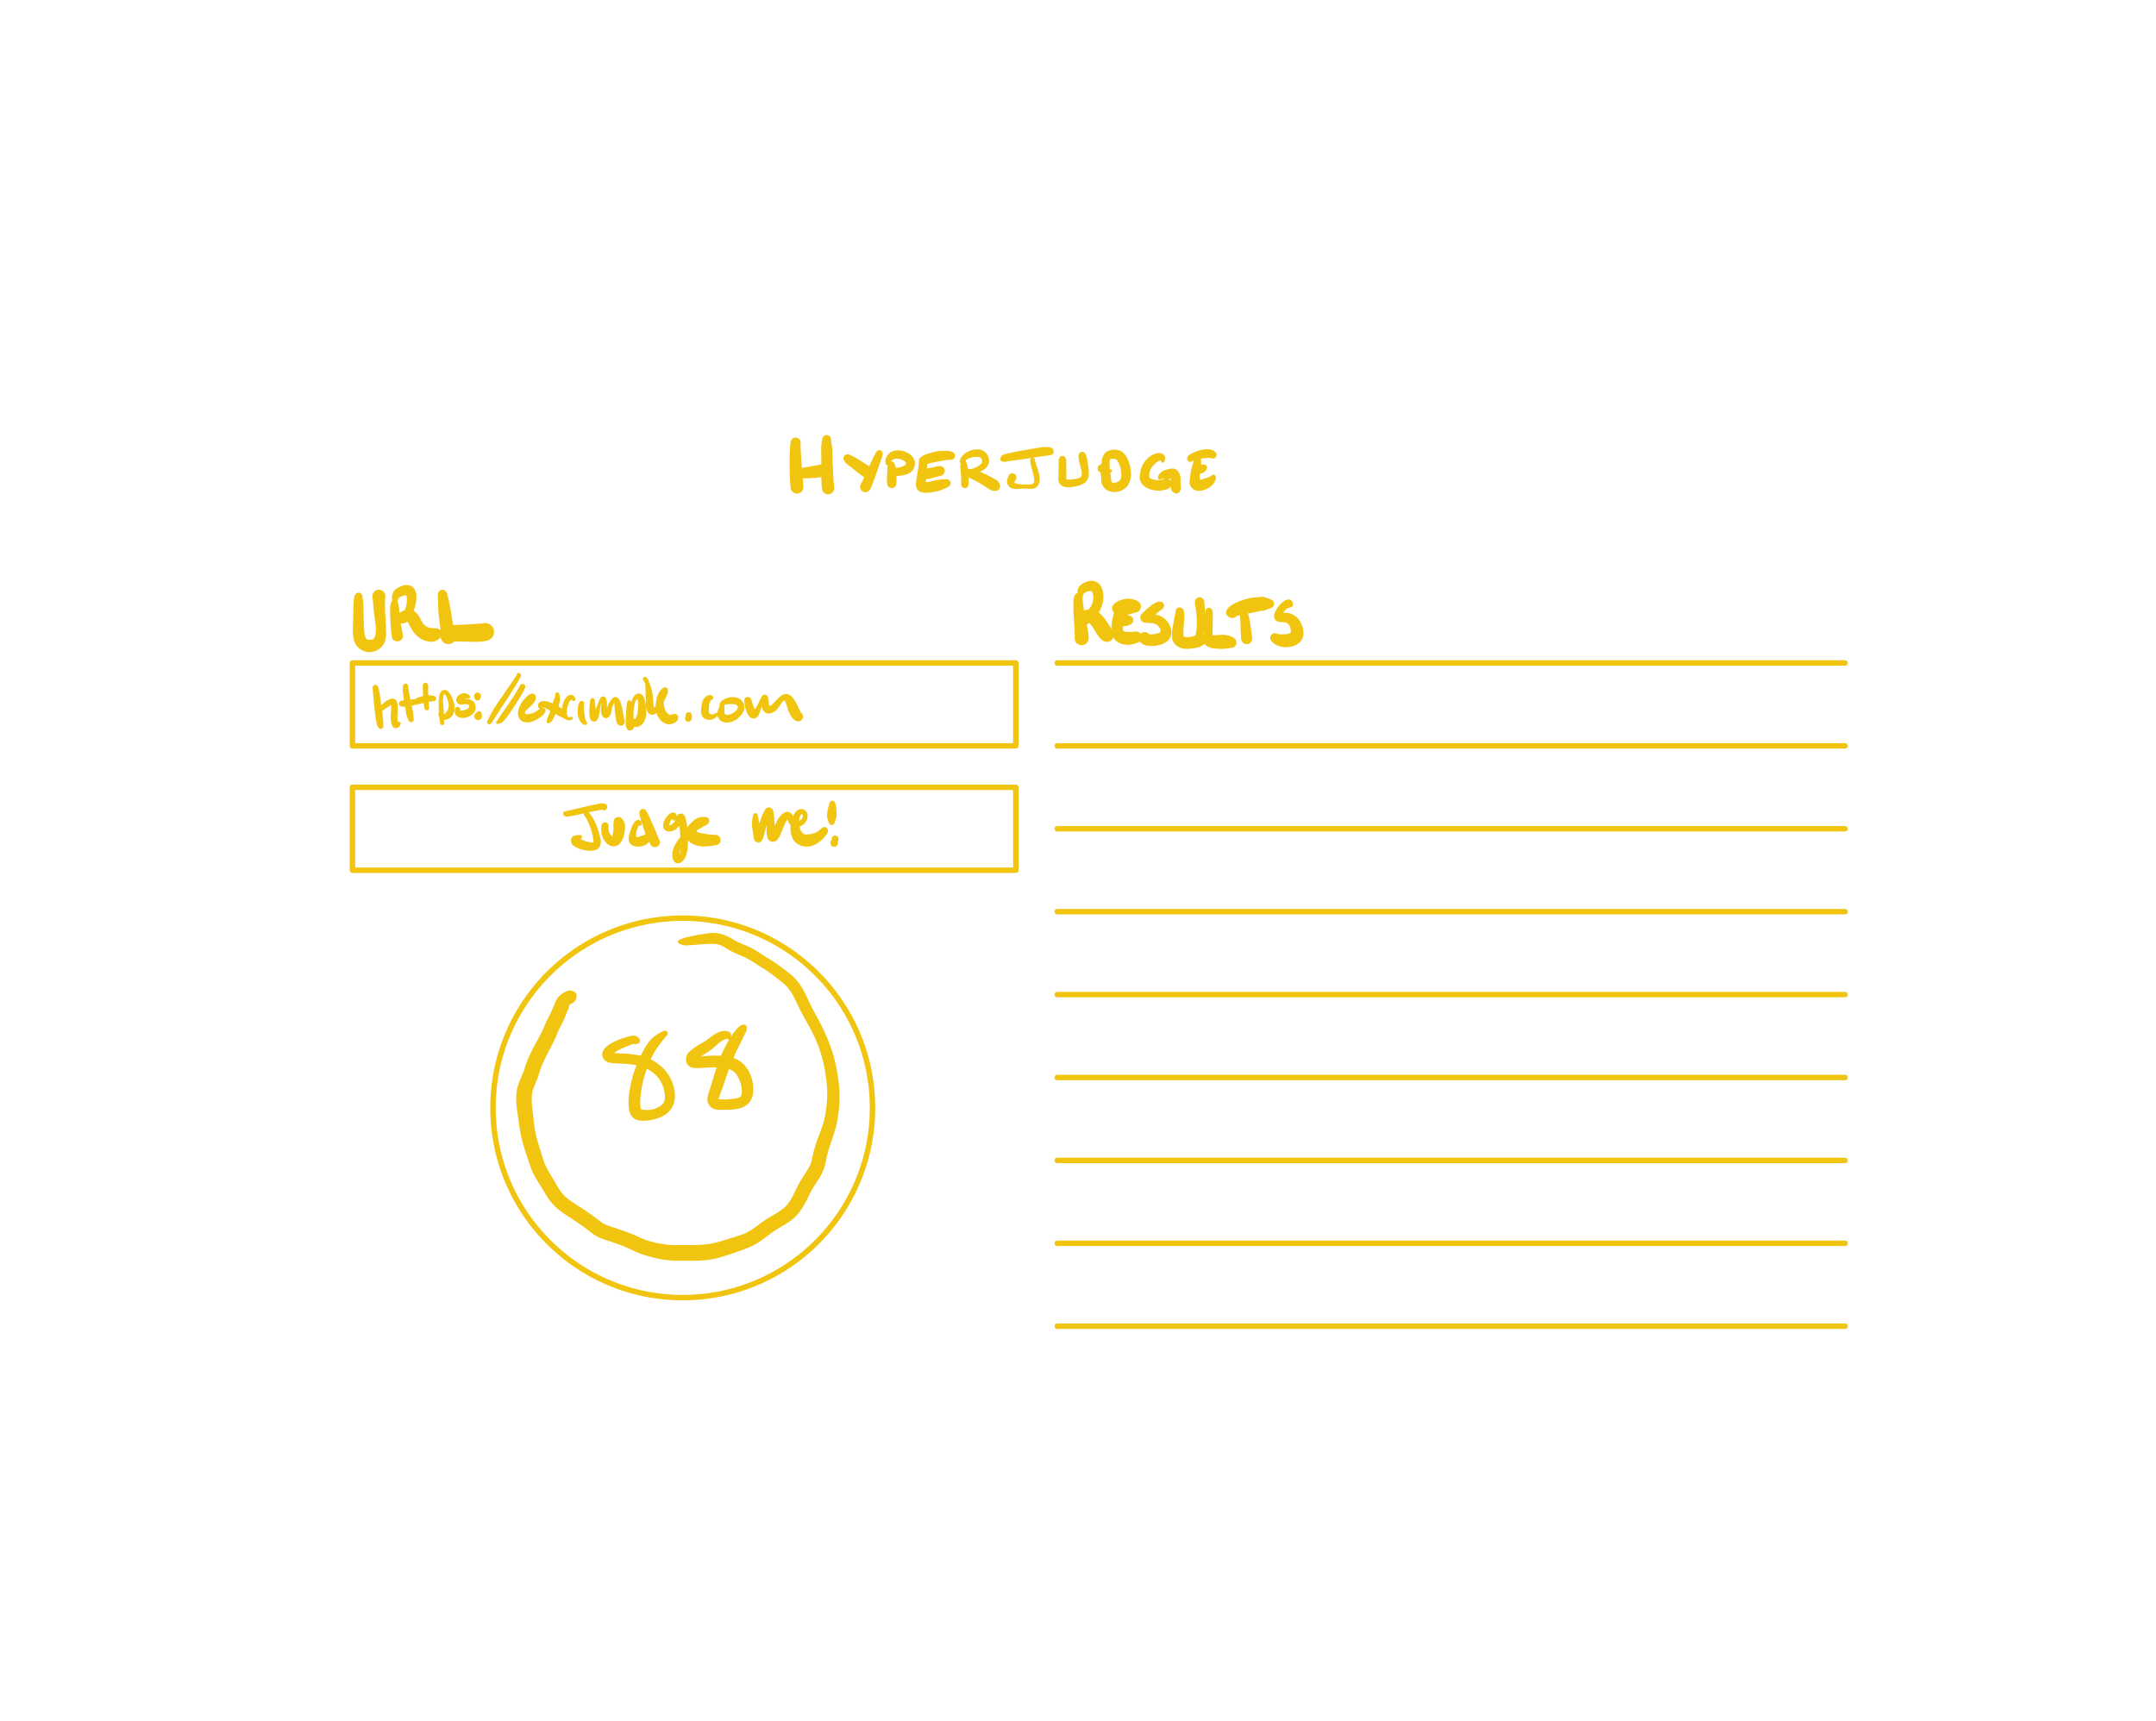 HYPERJUDGE
URL
https://example.com
Judge me!
88
RESULTS